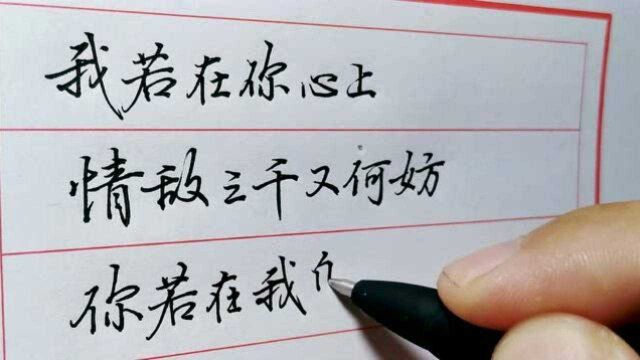 我若在你心上
情敌三千又何妨
你若在我